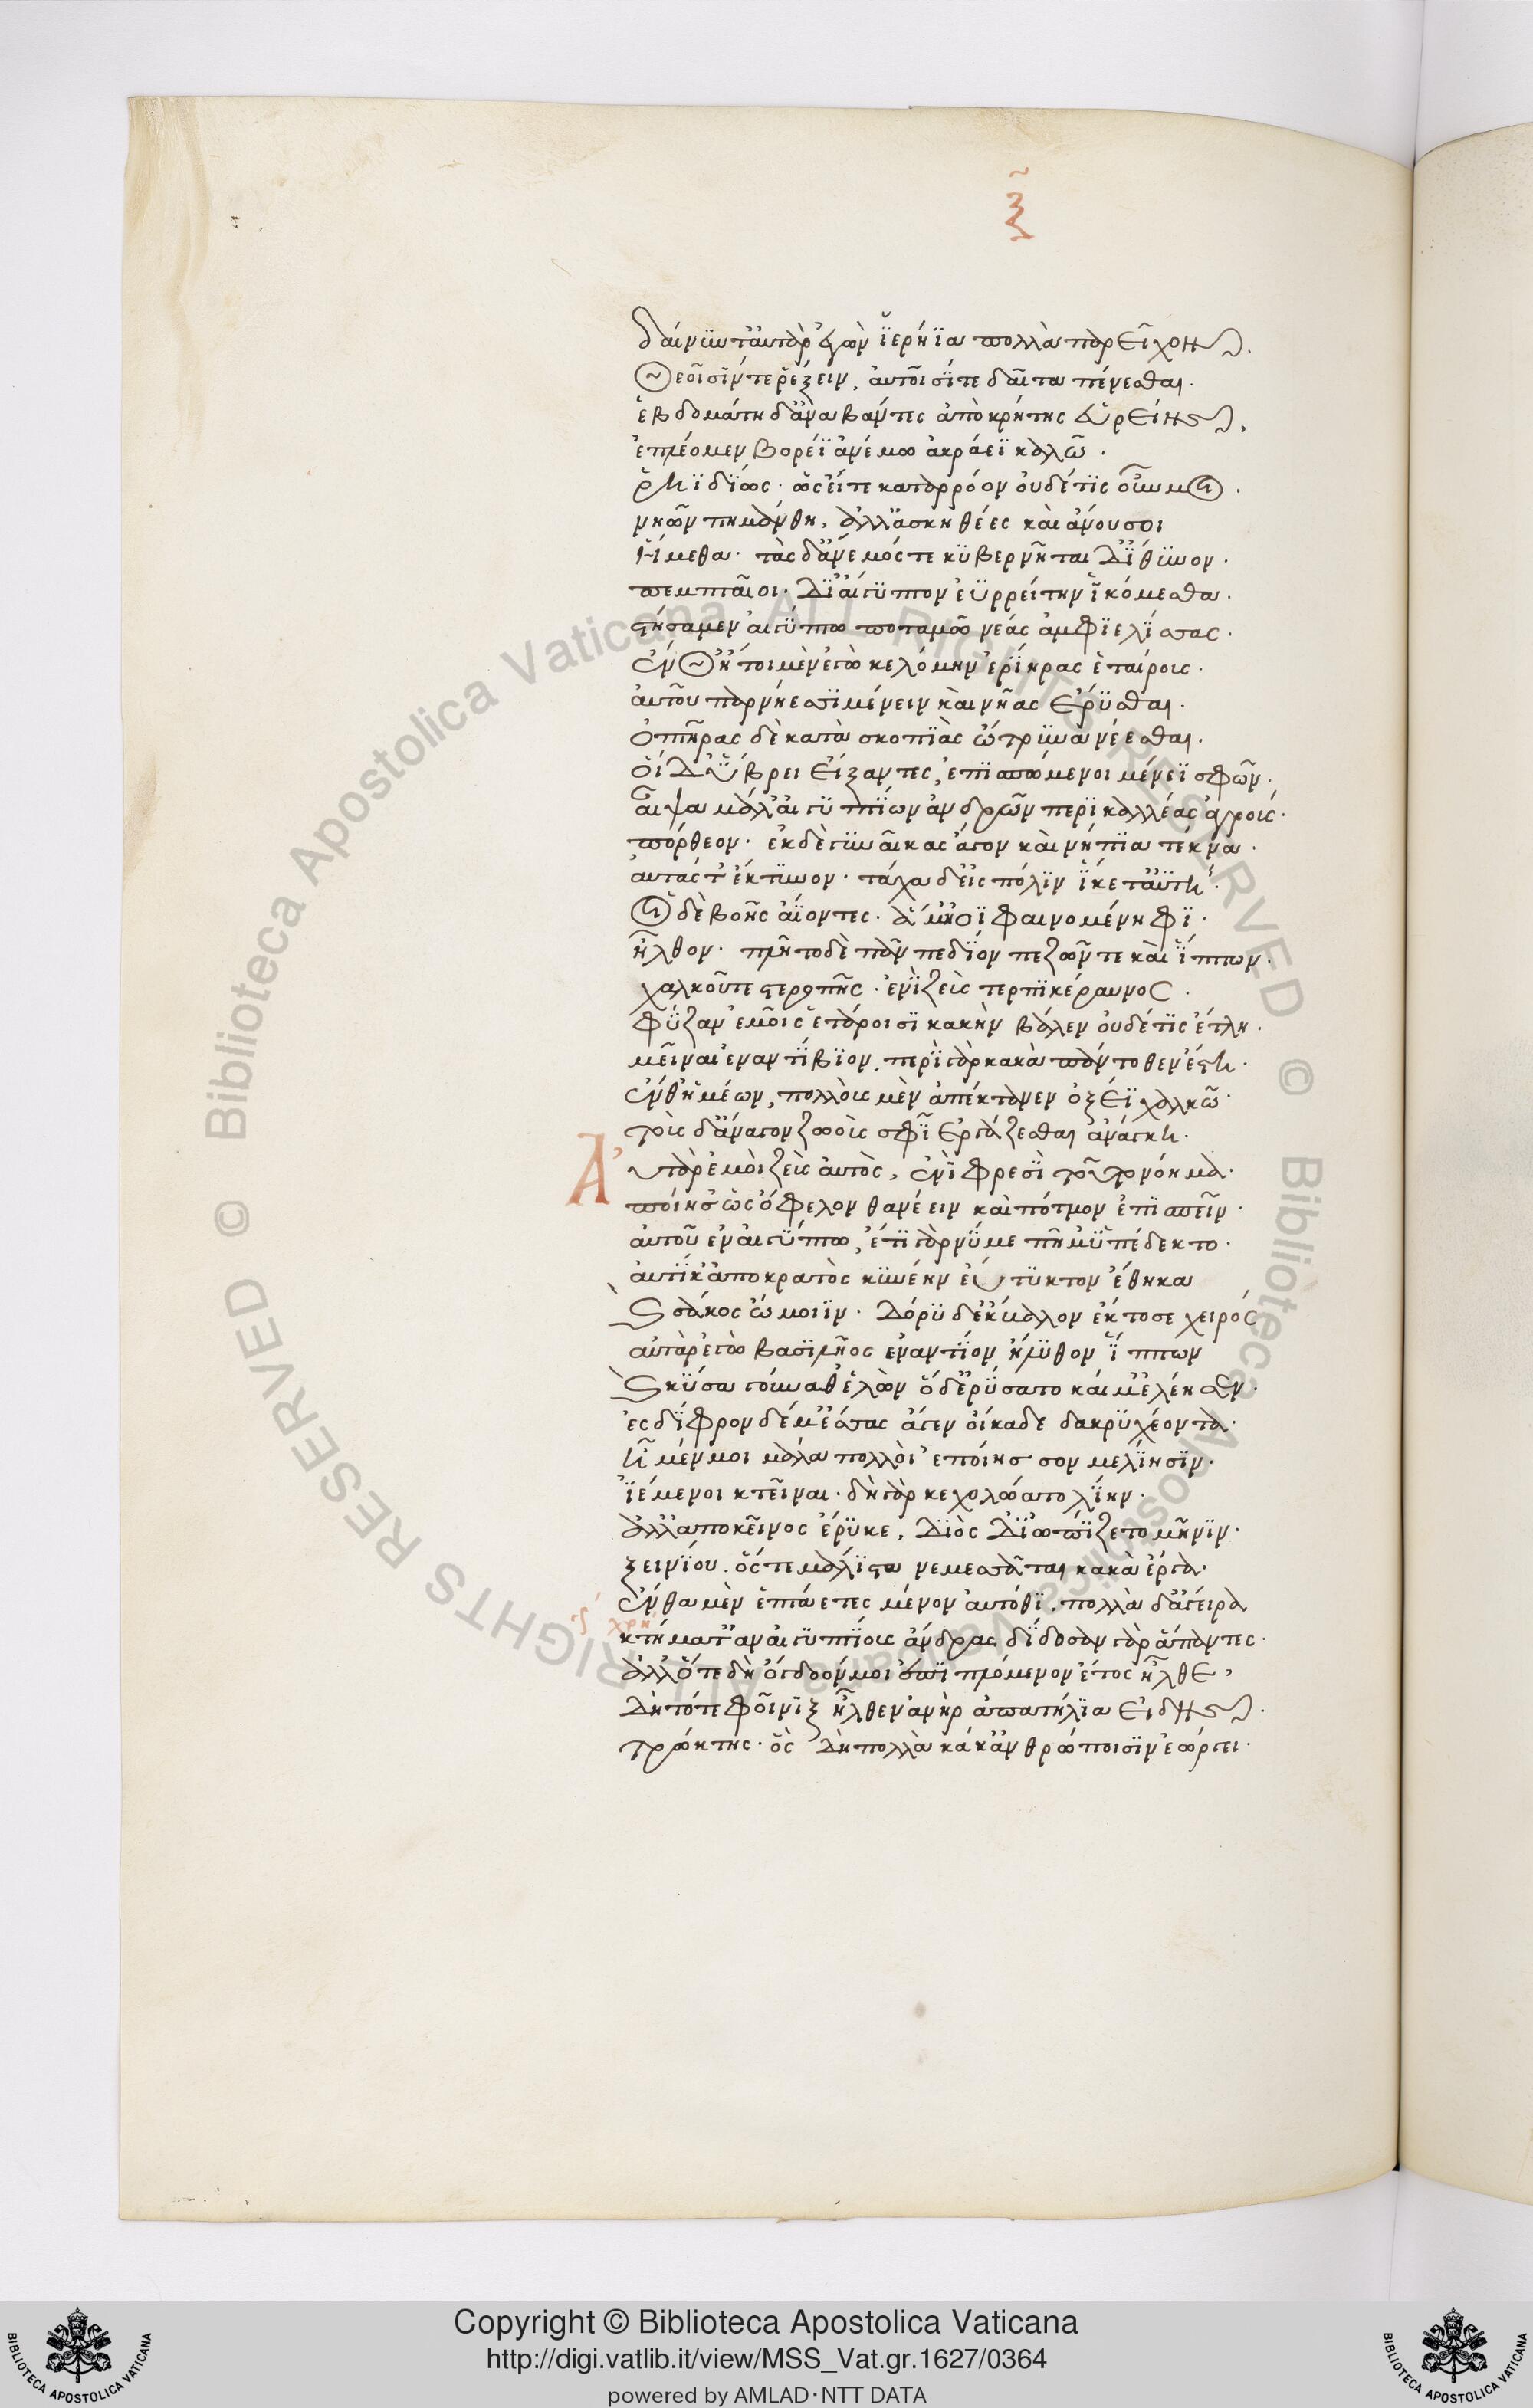 ξ
δαίνυντ' αὐτὰρ ἐγὼν ἱερήϊα πολλὰ παρεῖχον.
θεοῖσίν τε ῥέζειν, αὐτοῖσί τε δαῖτα πένεσθαι.
ἑβδομάτη δ' ἀναβάντες ἀπὸ κρήτης εὐρείης,
ἐπλέομεν βορέῃ ἀνέμω ἀκραέϊ καλῶ.
ῥηϊδίως· ὡσείτε κατὰ ῥρόον οὐδέ τις οὖν μοι.
νηῶν πημάνθη, ἀλλ' ἀσκηθέες καὶ ἄνουσοι
ἥμεθα· τὰς δ' ἄνεμός τε κυβερνῆται δ' ἴθυνον.
πεμπταῖοι· δ' αἴγυπτον ἐϋρρείτην ἱκόμεσθα.
στήσαμεν αἰγύπτω ποταμῶ νέας ἀμφιελίσσας.
ἔνθ' ἤτοι μὲν ἐγὼ κελόμην ἐρίηρας ἑταίρους.
αὐτοῦ παρ νήεσσι μένειν καὶ νῆας ἔρυσθαι.
ὀπτῆρας δὲ κατὰ σκοπιὰς ὤτρυνα νέεσθαι.
οἱ δ' ὕβρει εἴξαντες, ἐπισπόμενοι μένεϊ σφῶν.
αἶψα μάλ' αἰγυπτίων ἀνδρῶν περικαλλέας ἀγρούς.
πόρθεον· ἐκ δὲ γυναῖκας ἄγον καὶ νήπια τέκνα.
αὐτάς τ' ἔκτεινον· τάχα δ' ἐς πόλιν ἵκετ' ἀϋτή.
οἱ δὲ βοῆς ἀΐοντες· ἅμ' ἠοῖ φαινομένηφι.
ἦλθον· πλῆτο δὲ πᾶν πεδίον πεζῶν τε καὶ ἵππων.
χαλκοῦ τε στεροπῆς· ἐν δὲ ζεὺς τερπικέραυνος.
φύζαν ἐμοῖς ἑτάροισι κακὴν βάλεν οὐδέ τις ἔτλη.
μεῖναι ἐναντίβιον, περὶ γὰρ κακὰ πάντοθεν ἔστη.
ἔνθ' ἡμέων, πολλοὺς μὲν ἀπέκτανεν ὀξέϊ χαλκῶ.
τοὺς δ' ἄναγον ζωοὺς σφὶ ἐργάζεσθαι ἀνάγκη.
Αὐτὰρ ἐμοὶ ζεὺς αὐτὸς, ἐνὶ φρεσὶ τοῦτο νόημα.
ποίησ' ὡς ὄφελον θανέειν καὶ πότμον ἐπισπεῖν.
αὐτοῦ ἐν αἰγύπτω, ἔτι γάρ νύ με πῆμ' ὑπέδεκτο.
αὐτίκ' ἀπὸ κρατὸς κυνέην εὔτυκτον ἔθηκα
καὶ σάκος ὤμοιϊν· δόρυ δ' ἔκβαλλον ἔκτοσε χειρός
αὐτὰρ ἐγὼ βασιλῆος ἐναντίον ἤλυθον ἵππων
καὶ κύσα γούναθ' ἑλὼν ὁ δ' ἐρύσατο καί μ' ἐλέησεν.
ἐς δίφρον δέ μ' ἕσσας ἄγεν οἴκαδε δακρυχέοντα.
ἦ μέν μοι μάλα πολλοὶ ἐποίησσον μελίησιν.
ἱέμενοι κτεῖναι· δὴ γὰρ κεχολώατο λίην.
ἀλλ' ἀπὸ κεῖνος ἔρυκε, διὸς δ' ὠπίζετο μῆνιν.
ξεινίου. ὅς τε μάλιστα νεμεσσᾶται κακὰ ἔργα.
ἔνθα μὲν ἑπτάετες μένον αὐτόθι, πολλὰ δ' ἄγειρα
χρή
κτήματ' ἀν' αἰγυπτίους ἄνδρας δίδοσαν γὰρ ἅπαντες.
ἀλλ' ὅτε δὴ ὄγδοόν μοι ἐπιπλόμενον ἔτος ἦλθε,
δὴ τότε φοῖνιξ ἦλθεν ἀνὴρ ἀπατήλια εἰδώς.
τρώκτης· ὃς δὴ πολλὰ κάκ' ἀνθρώποισιν ἐώργει.
Copyright © Biblioteca Apostolica Vaticana
http://digi.vatlib.it/view/MSS_Vat.gr.1627/0364
powered by AMLAD·NTT DATA